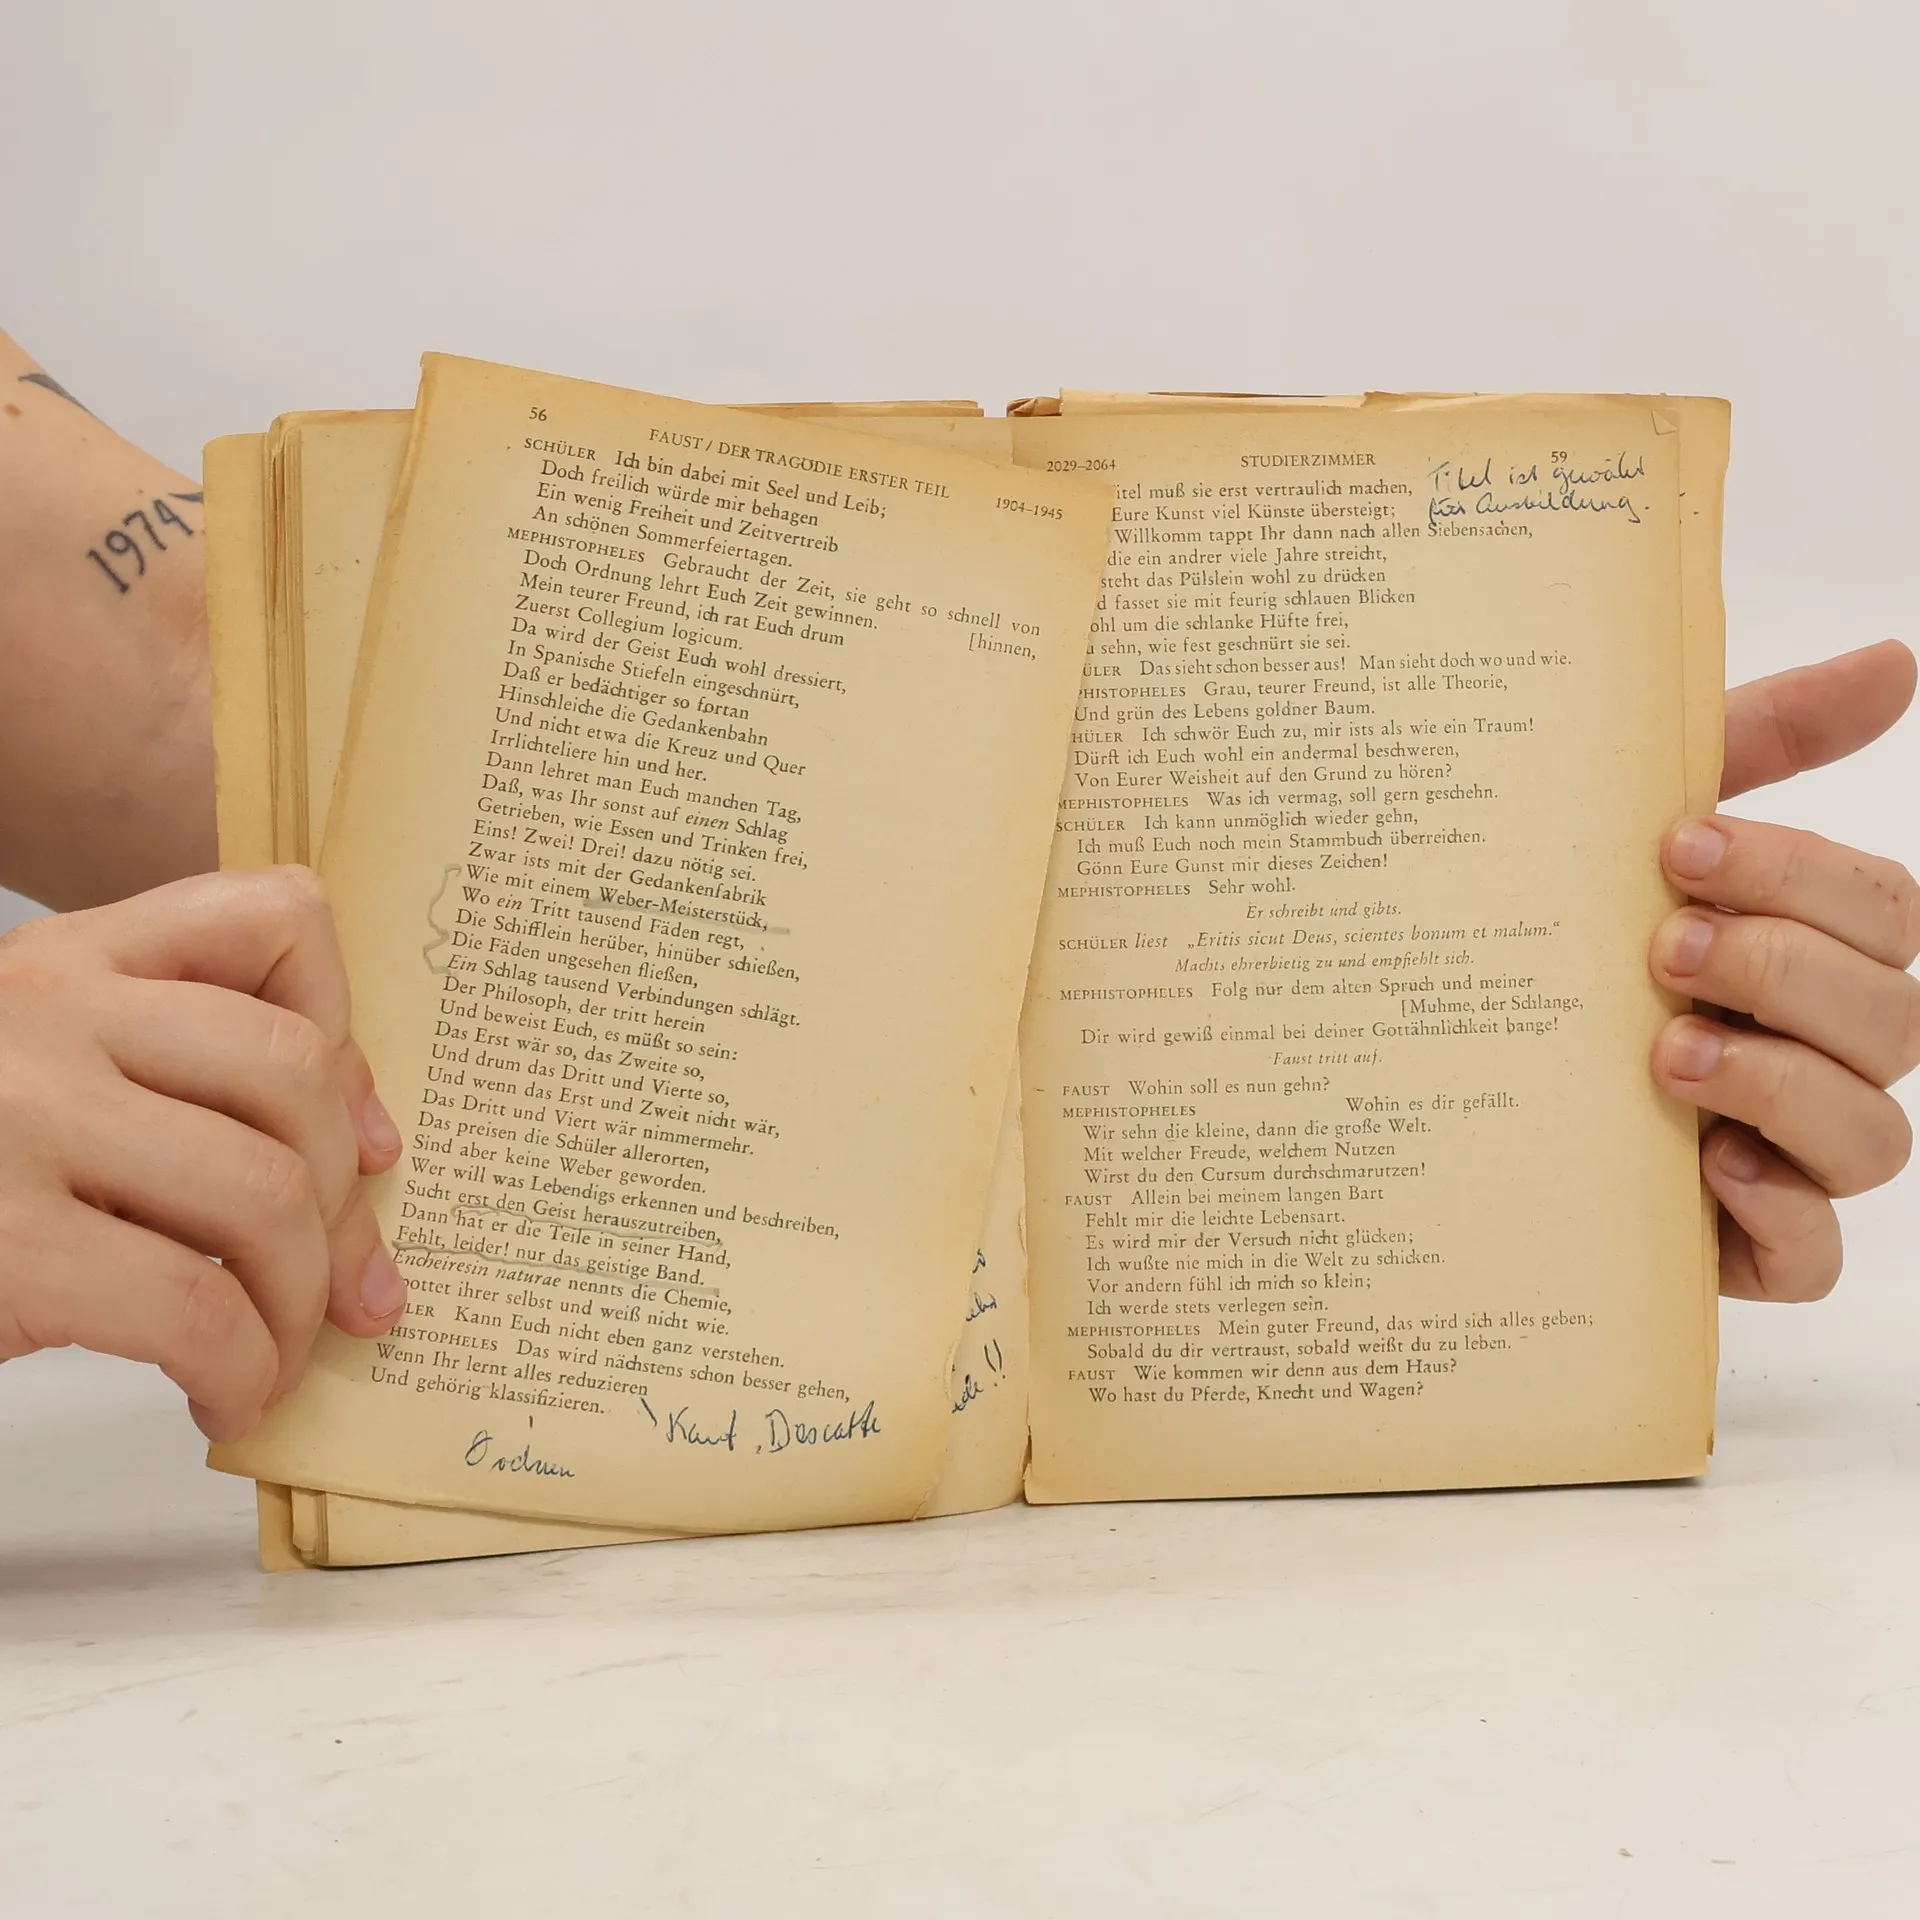 1974
56
FAUST / DER TRAGÖDIE ERSTER TEIL
1904–1945
SCHÜLER Ich bin dabei mit Seel und Leib;
Doch freilich würde mir behagen
Ein wenig Freiheit und Zeitvertreib
An schönen Sommerfeiertagen.
MEPHISTOPHELES Gebraucht der Zeit, sie geht so schnell von
[hinnen,
Doch Ordnung lehrt Euch Zeit gewinnen.
Mein teurer Freund, ich rat Euch drum
Zuerst Collegium logicum.
Da wird der Geist Euch wohl dressiert,
In Spanische Stiefeln eingeschnürt,
Daß er bedächtiger so fortan
Hinschleiche die Gedankenbahn
Und nicht etwa die Kreuz und Quer
Irrlichteliere hin und her.
Dann lehret man Euch manchen Tag,
Daß, was Ihr sonst auf einen Schlag
Getrieben, wie Essen und Trinken frei,
Eins! Zwei! Drei! dazu nötig sei.
Zwar ists mit der Gedankenfabrik
Wie mit einem Weber-Meisterstück,
Wo ein Tritt tausend Fäden regt,
Die Schifflein herüber, hinüber schießen,
Die Fäden ungesehen fließen,
Ein Schlag tausend Verbindungen schlägt.
Der Philosoph, der tritt herein
Und beweist Euch, es müßt so sein:
Das Erst wär so, das Zweite so,
Und drum das Dritt und Vierte so,
Und wenn das Erst und Zweit nicht wär,
Das Dritt und Viert wär nimmermehr.
Das preisen die Schüler allerorten,
Sind aber keine Weber geworden.
Wer will was Lebendigs erkennen und beschreiben,
Sucht erst den Geist herauszutreiben,
Dann hat er die Teile in seiner Hand,
Fehlt, leider! nur das geistige Band.
Encheiresin naturae nennts die Chemie,
pottet ihrer selbst und weiß nicht wie.
LER Kann Euch nicht eben ganz verstehen.
PHISTOPHELES Das wird nächstens schon besser gehen,
Wenn Ihr lernt alles reduzieren
Und gehörig klassifizieren.
Kant, Descatte
Ordnen
2029–2064
STUDIERZIMMER
59
Titel ist gewährt
für Ausbildung.
itel muß sie erst vertraulich machen,
Eure Kunst viel Künste übersteigt;
Willkomm tappt Ihr dann nach allen Siebensachen,
die ein andrer viele Jahre streicht,
steht das Pülslein wohl zu drücken
d fasset sie mit feurig schlauen Blicken
ohl um die schlanke Hüfte frei,
u sehn, wie fest geschnürt sie sei.
ÜLER Das sieht schon besser aus! Man sieht doch wo und wie.
PHISTOPHELES Grau, teurer Freund, ist alle Theorie,
Und grün des Lebens goldner Baum.
HÜLER Ich schwör Euch zu, mir ists als wie ein Traum!
Dürft ich Euch wohl ein andermal beschweren,
Von Eurer Weisheit auf den Grund zu hören?
MEPHISTOPHELES Was ich vermag, soll gern geschehn.
SCHÜLER Ich kann unmöglich wieder gehn,
Ich muß Euch noch mein Stammbuch überreichen.
Gönn Eure Gunst mir dieses Zeichen!
MEPHISTOPHELES Sehr wohl.
Er schreibt und gibts.
SCHÜLER liest „Eritis sicut Deus, scientes bonum et malum.“
Machts ehrerbietig zu und empfiehlt sich.
MEPHISTOPHELES Folg nur dem alten Spruch und meiner
[Muhme, der Schlange,
Dir wird gewiß einmal bei deiner Gottähnlichkeit bange!
Faust tritt auf.
FAUST Wohin soll es nun gehn?
MEPHISTOPHELES Wohin es dir gefällt.
Wir sehn die kleine, dann die große Welt.
Mit welcher Freude, welchem Nutzen
Wirst du den Cursum durchschmarutzen!
FAUST Allein bei meinem langen Bart
Fehlt mir die leichte Lebensart.
Es wird mir der Versuch nicht glücken;
Ich wußte nie mich in die Welt zu schicken.
Vor andern fühl ich mich so klein;
Ich werde stets verlegen sein.
MEPHISTOPHELES Mein guter Freund, das wird sich alles geben;
Sobald du dir vertraust, sobald weißt du zu leben.
FAUST Wie kommen wir denn aus dem Haus?
Wo hast du Pferde, Knecht und Wagen?